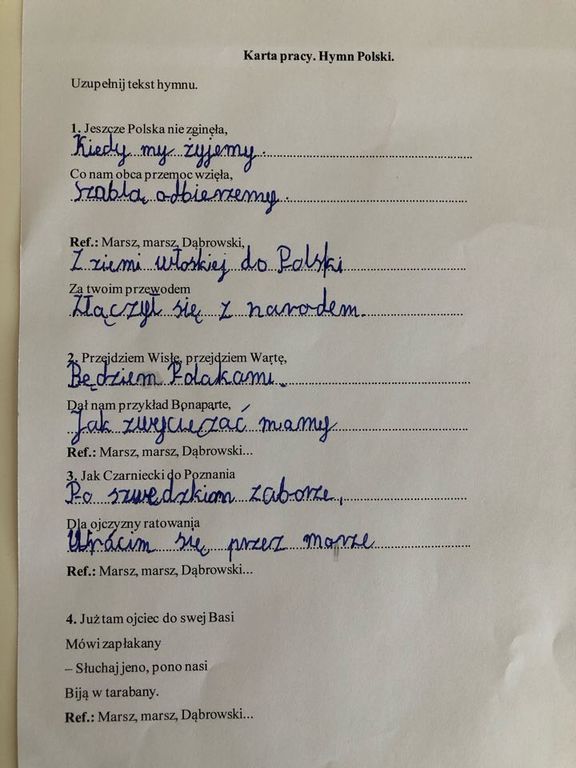 Karta pracy. Hymn Polski.
Uzupełnij tekst hymnu.
1. Jeszcze Polska nie zginęła,
Kiedy my żyjemy.
Co nam obca przemoc wzięła,
Szablą odbierzemy.
Ref.: Marsz, marsz, Dąbrowski,
Z ziemi włoskiej do Polski
Za twoim przewodem
Złączył się z narodem.
2. Przejdziem Wisłę, przejdziem Wartę,
Będziem Polakami.
Dał nam przykład Bonaparte,
Jak zwyciężać mamy
Ref.: Marsz, marsz, Dąbrowski...
3. Jak Czarniecki do Poznania
Po szwedzkiom zaborze,
Dla ojczyzny ratowania
Wrócim się przez morze
Ref.: Marsz, marsz, Dąbrowski...
4. Już tam ojciec do swej Basi
Mówi zapłakany
– Słuchaj jeno, pono nasi
Biją w tarabany.
Ref.: Marsz, marsz, Dąbrowski...